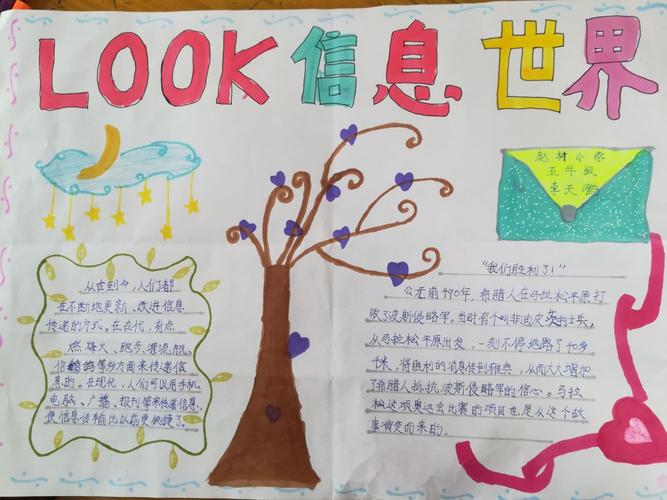 LOOK 信息世界
赵村小学
五年级
李天
从古到今，人们都
在不断地更新、改进信息
传递的方式。在古代，有点
燃烽火、跑步、漂流瓶、
信鸽等多方面来传递信
息的。在现代，人们可以用手机
电脑、广播、报刊等来传递信息，
使信息传输比以前更快捷了。
“我们胜利了！”
公元前490年，希腊人在马拉松平原打
败了波斯侵略军。当时有个叫菲迪皮茨的士兵，
从马拉松平原出发，一刻不停地跑了40多
千米，将胜利的消息传到雅典，从而大大增加
了希腊人抵抗波斯侵略军的信心。马拉
松这项奥运会比赛的项目也是从这个故
事演变而来的。